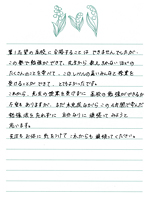 第1志望の高校に合格することはできませんでしたが、
この塾で勉強ができて、先生から教えきれないほどの
たくさんのことを学べて、このしげんの高い仲間と授業を
受けることができて、とてもよかったです。
これから、先生の授業を受けずに高校の勉強ができるか
不安もありますが、まだ未完成ながらこの4年間で学んだ
勉強法を忘れずに自分なりに頑張ってみようと
思います。
先生もお体に気をつけてこれからも頑張ってください。